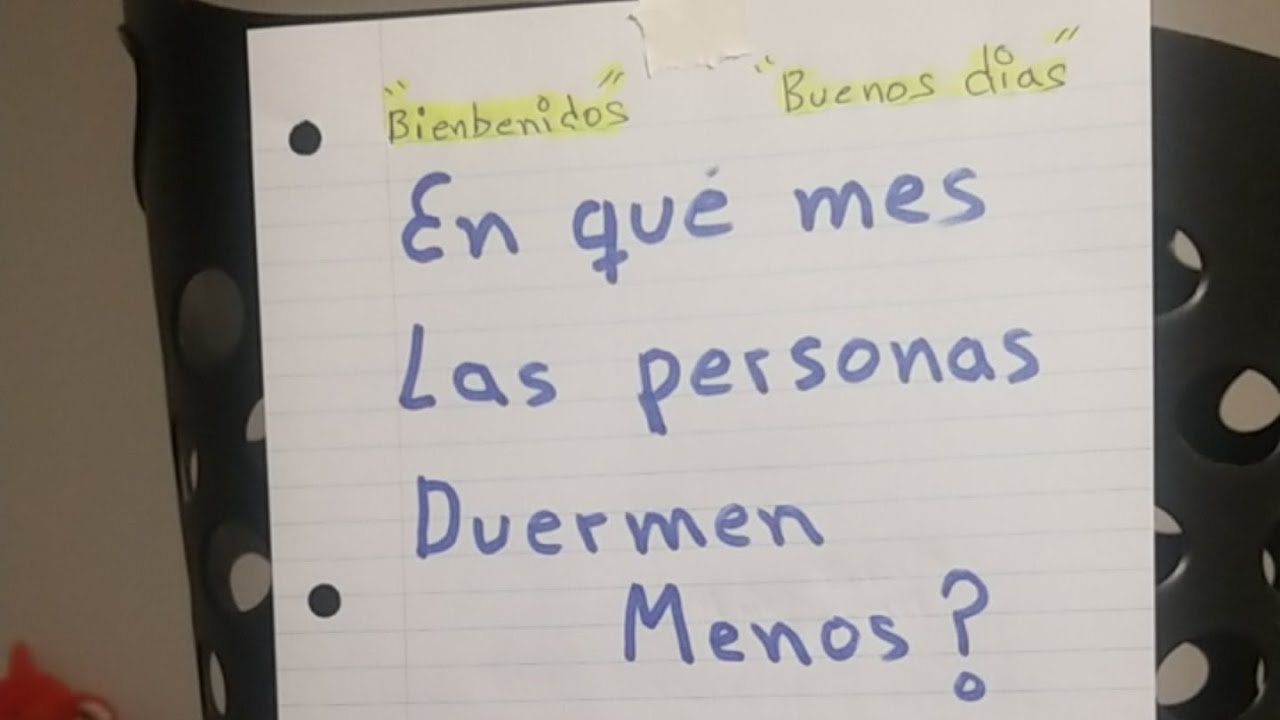 "Bienbenidos" "Buenos días"
En qué mes
Las personas
Duermen
Menos?